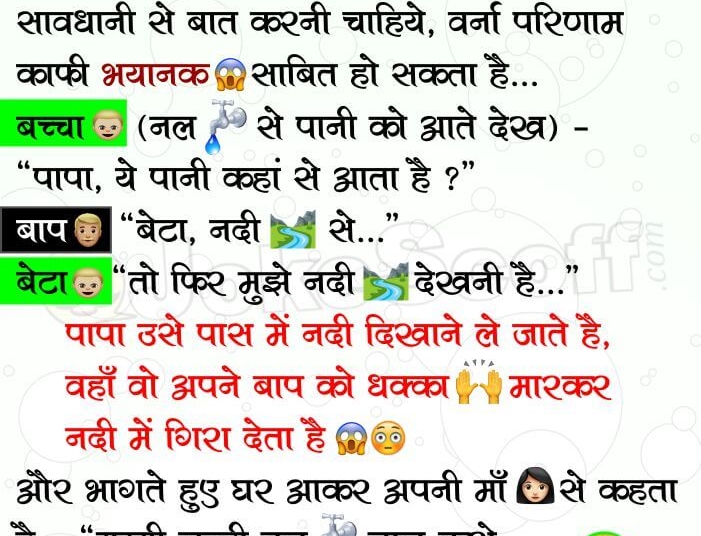 सावधानी से बात करनी चाहिये, वर्ना परिणाम
काफी भयानक😱साबित हो सकता है...
बच्चा👦 (नल 🚰 से पानी को आते देख) -
“पापा, ये पानी कहां से आता है ?”
बाप👨 “बेटा, नदी 🏞️ से...”
बेटा👦“तो फिर मुझे नदी 🏞️ देखनी है...”
पापा उसे पास में नदी दिखाने ले जाते है,
वहाँ वो अपने बाप को धक्का🙌मारकर
नदी में गिरा देता है 😱😳
और भागते हुए घर आकर अपनी माँ 👩से कहता